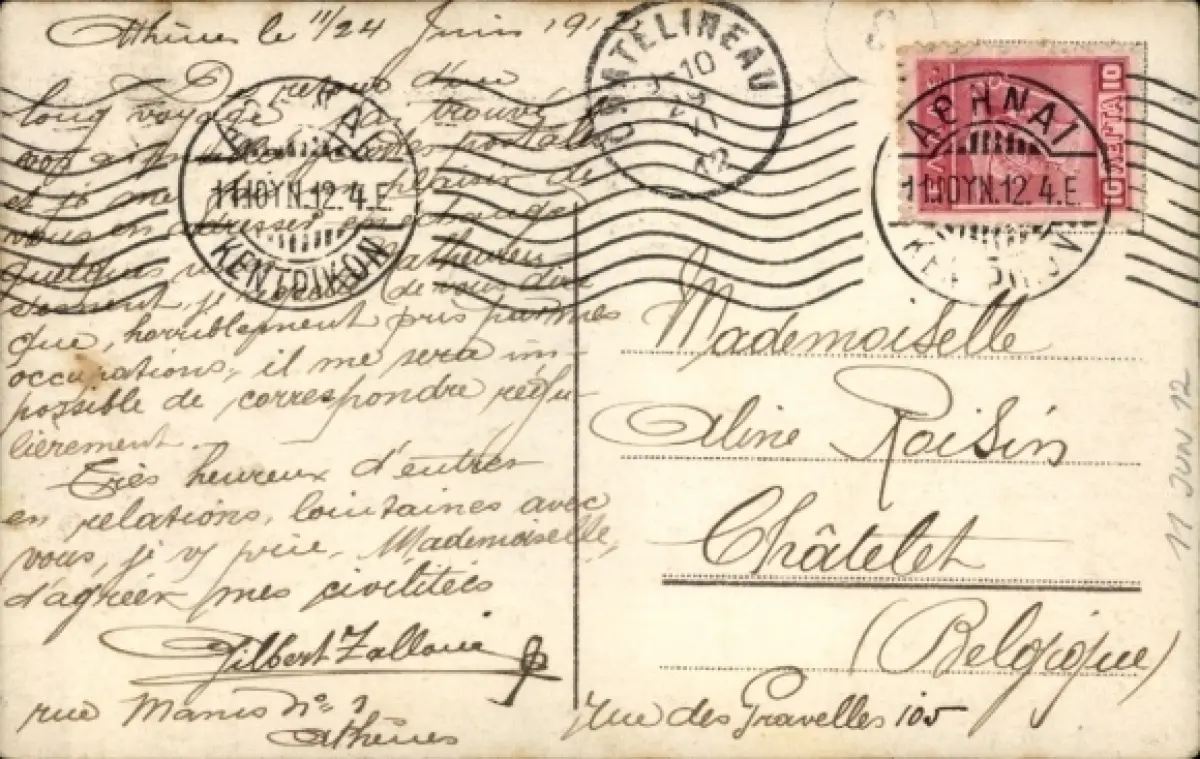 Athènes le 11/24 Juin 1912
De retour d'un
long voyage j'ai trouvé
vos cartes postales
et je me plaisir de
vous en adresser en échange
quelques
je de vous dire
que, horriblement pris par mes
occupations, il me sera im-
possible de correspondre régu-
lièrement.
Très heureux d'entrer
en relations, lointaines avec
vous, je vs prie, Mademoiselle,
d'agréer mes civilités
Gilbert
rue Manis No
Athènes
CHATELINEAU
10
12
ΑΘΗΝΑΙ
11 ΙΟΥΝ. 12. 4. Ε.
ΚΕΝΤΡΙΚΟΝ
ΑΘΗΝΑΙ
11 ΙΟΥΝ. 12. 4. Ε.
ΚΕΝΤΡΙΚΟΝ
10 ΛΕΠΤΑ 10
Mademoiselle
Aline Roisin
Châtelet
(Belgique)
Rue des Gravelles 105
11 JUN 12